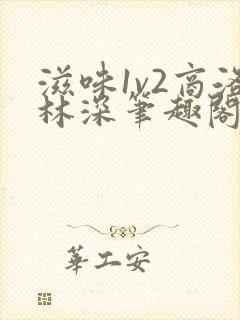 滋味1v2高洛
林深笔趣阁
華工安